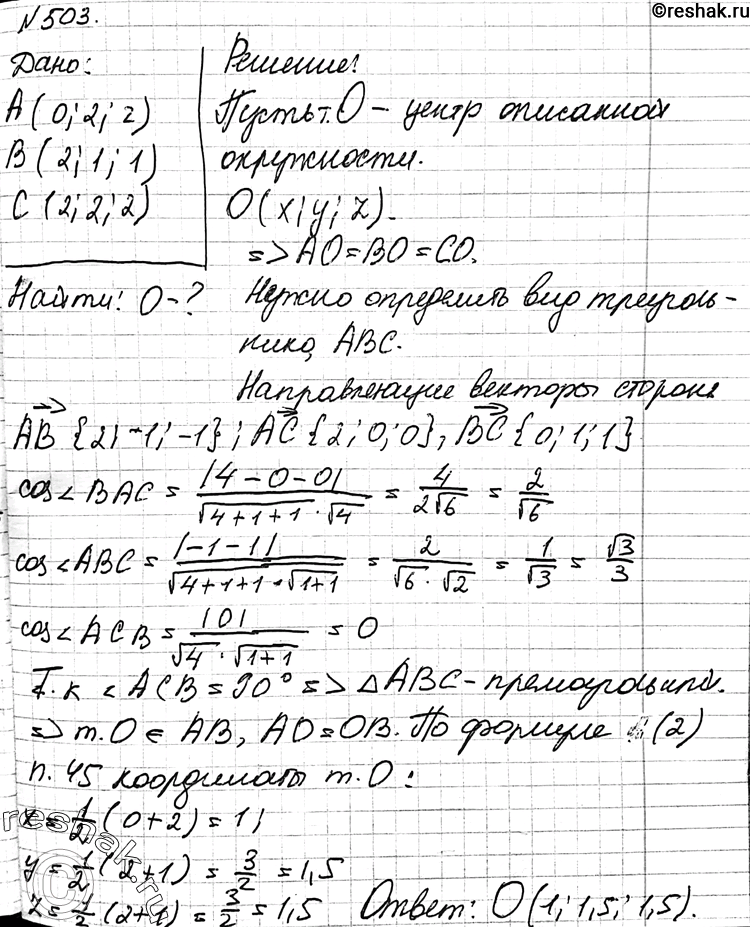 ©reshak.ru
№503.
Дано:
A(0; 2; 2)
B(2; 1; 1)
C(2; 2; 2)
Найти: O-?
Решение:
Пусть т. O – центр описанной
окружности.
O(x; y; z).
=> AO=BO=CO.
Нужно определить вид треуголь-
ника ABC.
Направляющие векторы сторон:
AB {2; -1; -1}; AC {2; 0; 0}, BC {0; 1; 1}
cos<BAC = |4-0-0| / (√4+1+1 · √4) = 4/(2√6) = 2/√6
cos<ABC = |-1-1| / (√4+1+1 · √1+1) = 2/(√6 · √2) = 1/√3 = √3/3
cos<ACB = |0| / (√4 · √1+1) = 0
Т.к <ACB = 90° => △ABC – прямоугольный.
=> т. O ∈ AB, AO=OB. По формуле (2)
п. 45 координаты т. O:
x = 1/2 (0+2) = 1;
y = 1/2 (2+1) = 3/2 = 1,5
z = 1/2 (2+1) = 3/2 = 1,5 Ответ: O(1; 1,5; 1,5).
reshak.ru